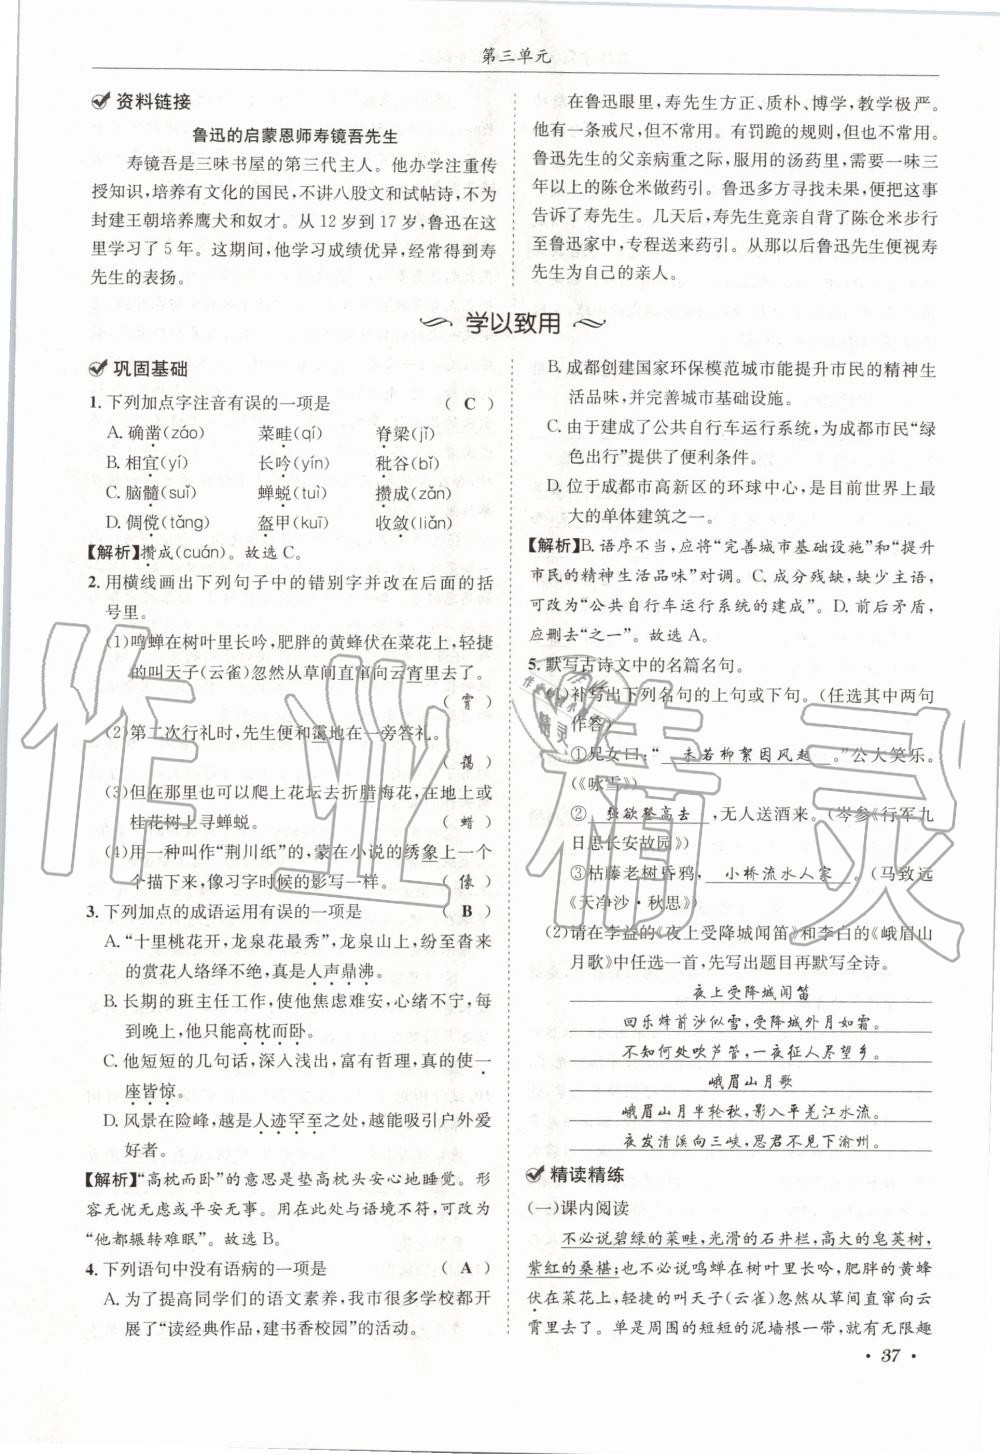 第三单元
资料链接
鲁迅的启蒙恩师寿镜吾先生
寿镜吾是三味书屋的第三代主人。他办学注重传
授知识,培养有文化的国民,不讲八股文和试帖诗,不为
封建王朝培养鹰犬和奴才。从 12 岁到 17 岁,鲁迅在这
里学习了 5 年。这期间,他学习成绩优异,经常得到寿
先生的表扬。
在鲁迅眼里,寿先生方正、质朴、博学,教学极严。
他有一条戒尺,但不常用。有罚跪的规则,但也不常用。
鲁迅先生的父亲病重之际,服用的汤药里,需要一味三
年以上的陈仓米做药引。鲁迅多方寻找未果,便把这事
告诉了寿先生。几天后,寿先生竟亲自背了陈仓米步行
至鲁迅家中,专程送来药引。从那以后鲁迅先生便视寿
先生为自己的亲人。
学以致用
巩固基础
1. 下列加点字注音有误的一项是 ( C )
A. 确凿(záo) 菜畦(qí) 脊梁(jǐ)
B. 相宜(yí) 长吟(yín) 秕谷(bǐ)
C. 脑髓(suǐ) 蝉蜕(tuì) 攒成(zǎn)
D. 倜傥(tǎng) 盔甲(kuī) 收敛(liǎn)
【解析】攒成(cuán)。故选 C。
2. 用横线画出下列句子中的错别字并改在后面的括
号里。
(1)鸣蝉在树叶里长吟,肥胖的黄蜂伏在菜花上,轻捷
的叫天子(云雀)忽然从草间直窜向云宵里去了。
( 霄 )
(2)第二次行礼时,先生便和霭地在一旁答礼。
( 蔼 )
(3)但在那里也可以爬上花坛去折腊梅花,在地上或
桂花树上寻蝉蜕。 ( 蜡 )
(4)用一种叫作“荆川纸”的,蒙在小说的绣象上一个
个描下来,像习字时候的影写一样。 ( 像 )
3. 下列加点的成语运用有误的一项是 ( B )
A. “十里桃花开,龙泉花最秀”,龙泉山上,纷至沓来
的赏花人络绎不绝,真是人声鼎沸。
B. 长期的班主任工作,使他焦虑难安,心绪不宁,每
到晚上,他只能高枕而卧。
C. 他短短的几句话,深入浅出,富有哲理,真的使一
座皆惊。
D. 风景在险峰,越是人迹罕至之处,越能吸引户外爱
好者。
【解析】“高枕而卧”的意思是垫高枕头安心地睡觉。形
容无忧无虑或平安无事。用在此处与语境不符,可改为
“他都辗转难眠”。故选 B。
4. 下列语句中没有语病的一项是 ( A )
A. 为了提高同学们的语文素养,我市很多学校都开
展了“读经典作品,建书香校园”的活动。
B. 成都创建国家环保模范城市能提升市民的精神生
活品味,并完善城市基础设施。
C. 由于建成了公共自行车运行系统,为成都市民“绿
色出行”提供了便利条件。
D. 位于成都市高新区的环球中心,是目前世界上最
大的单体建筑之一。
【解析】B. 语序不当,应将“完善城市基础设施”和“提升
市民的精神生活品味”对调。C. 成分残缺,缺少主语,
可改为“公共自行车运行系统的建成”。D. 前后矛盾,
应删去“之一”。故选 A。
5. 默写古诗文中的名篇名句。
(1)补写出下列名句的上句或下句。(任选其中两句
作答)
①兄女曰:“ 未若柳絮因风起 。”公大笑乐。
(《咏雪》)
② 强欲登高去 ,无人送酒来。(岑参《行军九
日思长安故园》)
③枯藤老树昏鸦, 小桥流水人家 。(马致远
《天净沙·秋思》)
(2)请在李益的《夜上受降城闻笛》和李白的《峨眉山
月歌》中任选一首,先写出题目再默写全诗。
夜上受降城闻笛
回乐烽前沙似雪,受降城外月如霜。
不知何处吹芦管,一夜征人尽望乡。
峨眉山月歌
峨眉山月半轮秋,影入平羌江水流。
夜发清溪向三峡,思君不见下渝州。
精读精练
(一)课内阅读
不必说碧绿的菜畦,光滑的石井栏,高大的皂荚树,
紫红的桑椹;也不必说鸣蝉在树叶里长吟,肥胖的黄蜂
伏在菜花上,轻捷的叫天子(云雀)忽然从草间直窜向云
霄里去了。单是周围的短短的泥墙根一带,就有无限趣
· 37 ·
作业精灵